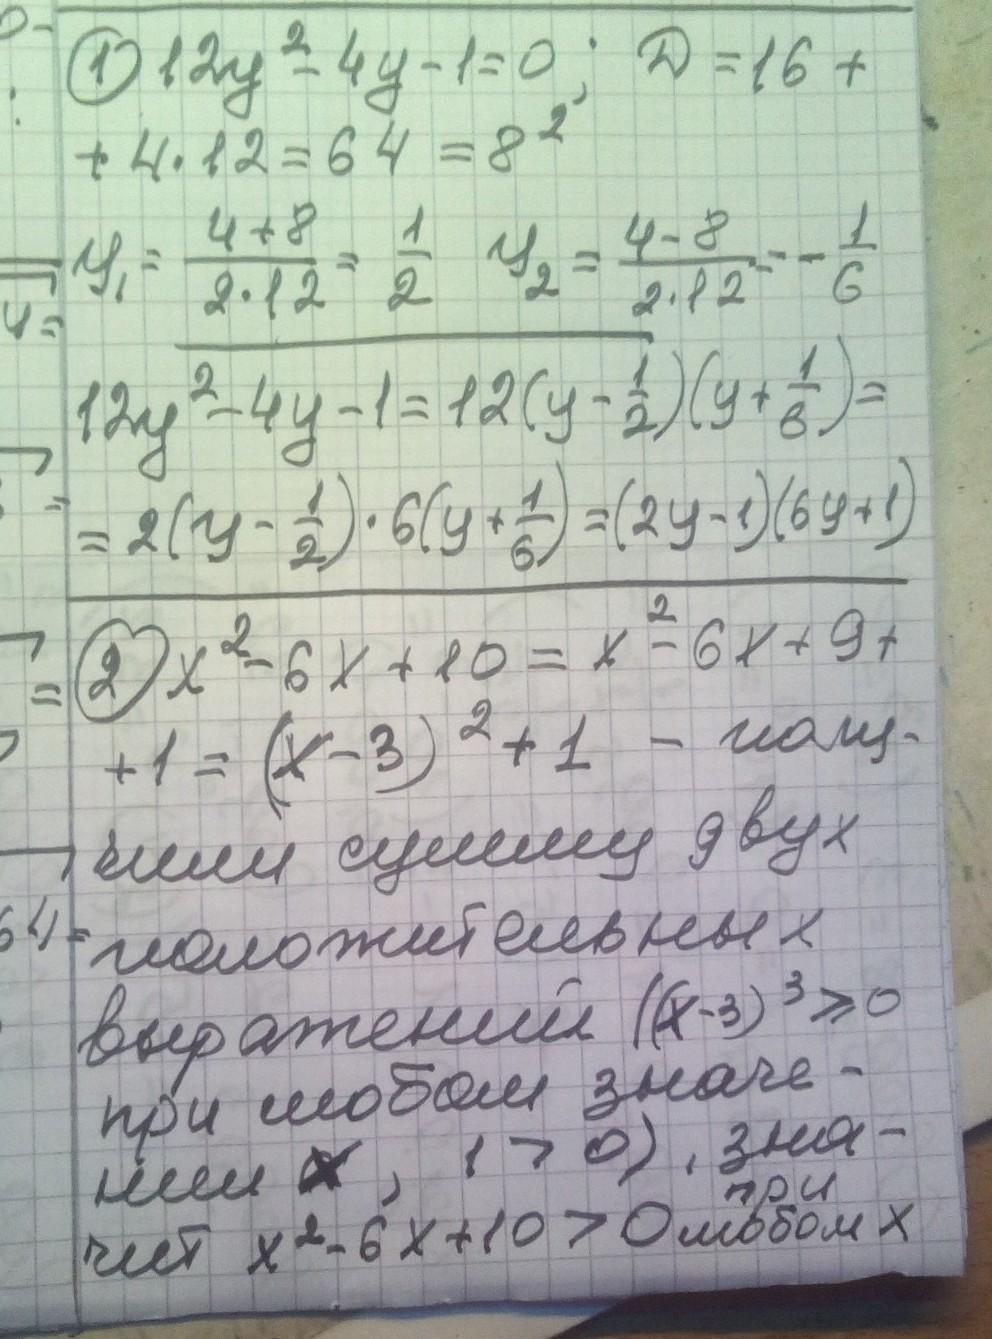 ① 12y² - 4y - 1 = 0; D = 16 +
+ 4·12 = 64 = 8²
y₁ = (4+8)/(2·12) = 1/2 y₂ = (4-8)/(2·12) = -1/6
12y² - 4y - 1 = 12(y - 1/2)(y + 1/6) =
= 2(y - 1/2)·6(y + 1/6) = (2y-1)(6y+1)
② x² - 6x + 10 = x² - 6x + 9 +
+ 1 = (x-3)² + 1 - полу-
чили сумму двух
положительных
выражений ((x-3)³ ≥ 0
при любом значе-
нии x, 1 > 0), зна-
чит x² - 6x + 10 > 0 при любом x